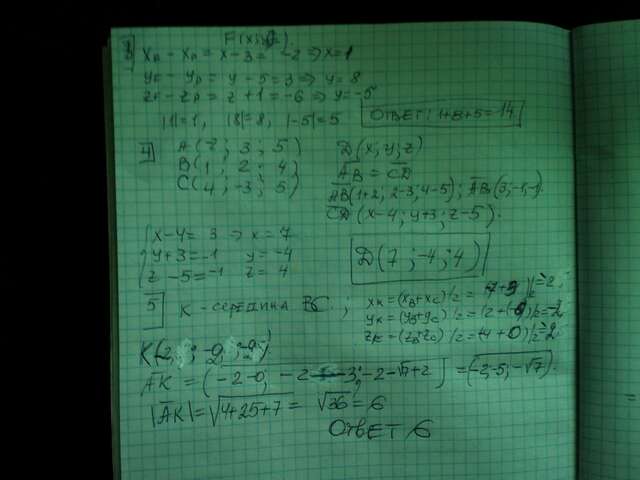 F(x; y; z)
3 xF - xA = x - 3 = -2 => x = 1
yF - yA = y - 5 = 3 => y = 8
zF - zA = z + 1 = -6 => y = -5
|1| = 1, |8| = 8, |-5| = 5
ОТВЕТ: 1+8+5=14
4 A( ; 3 ; 5)
B(1 ; 2 ; 4)
C(4 ; -3 ; 5)
D(x; y; z)
AB = CD
AB(1+2; 2-3; 4-5); AB(3; -1; -1).
CD(x-4; y+3; z-5).
x-4 = 3 => x = 7
y+3 = -1 y = -4
z-5 = -1 z = 4
D(7; -4; 4)
5 K - середина BC;
xK = (xB + xC)/2 =
yK = (yB + yC)/2 =
zK = (zB + zC)/2 =
AK = (-2-0; -3; -2-√7+2) = (-2; -5; -√7).
|AK| = √4+25+7 = √36 = 6
Ответ 6